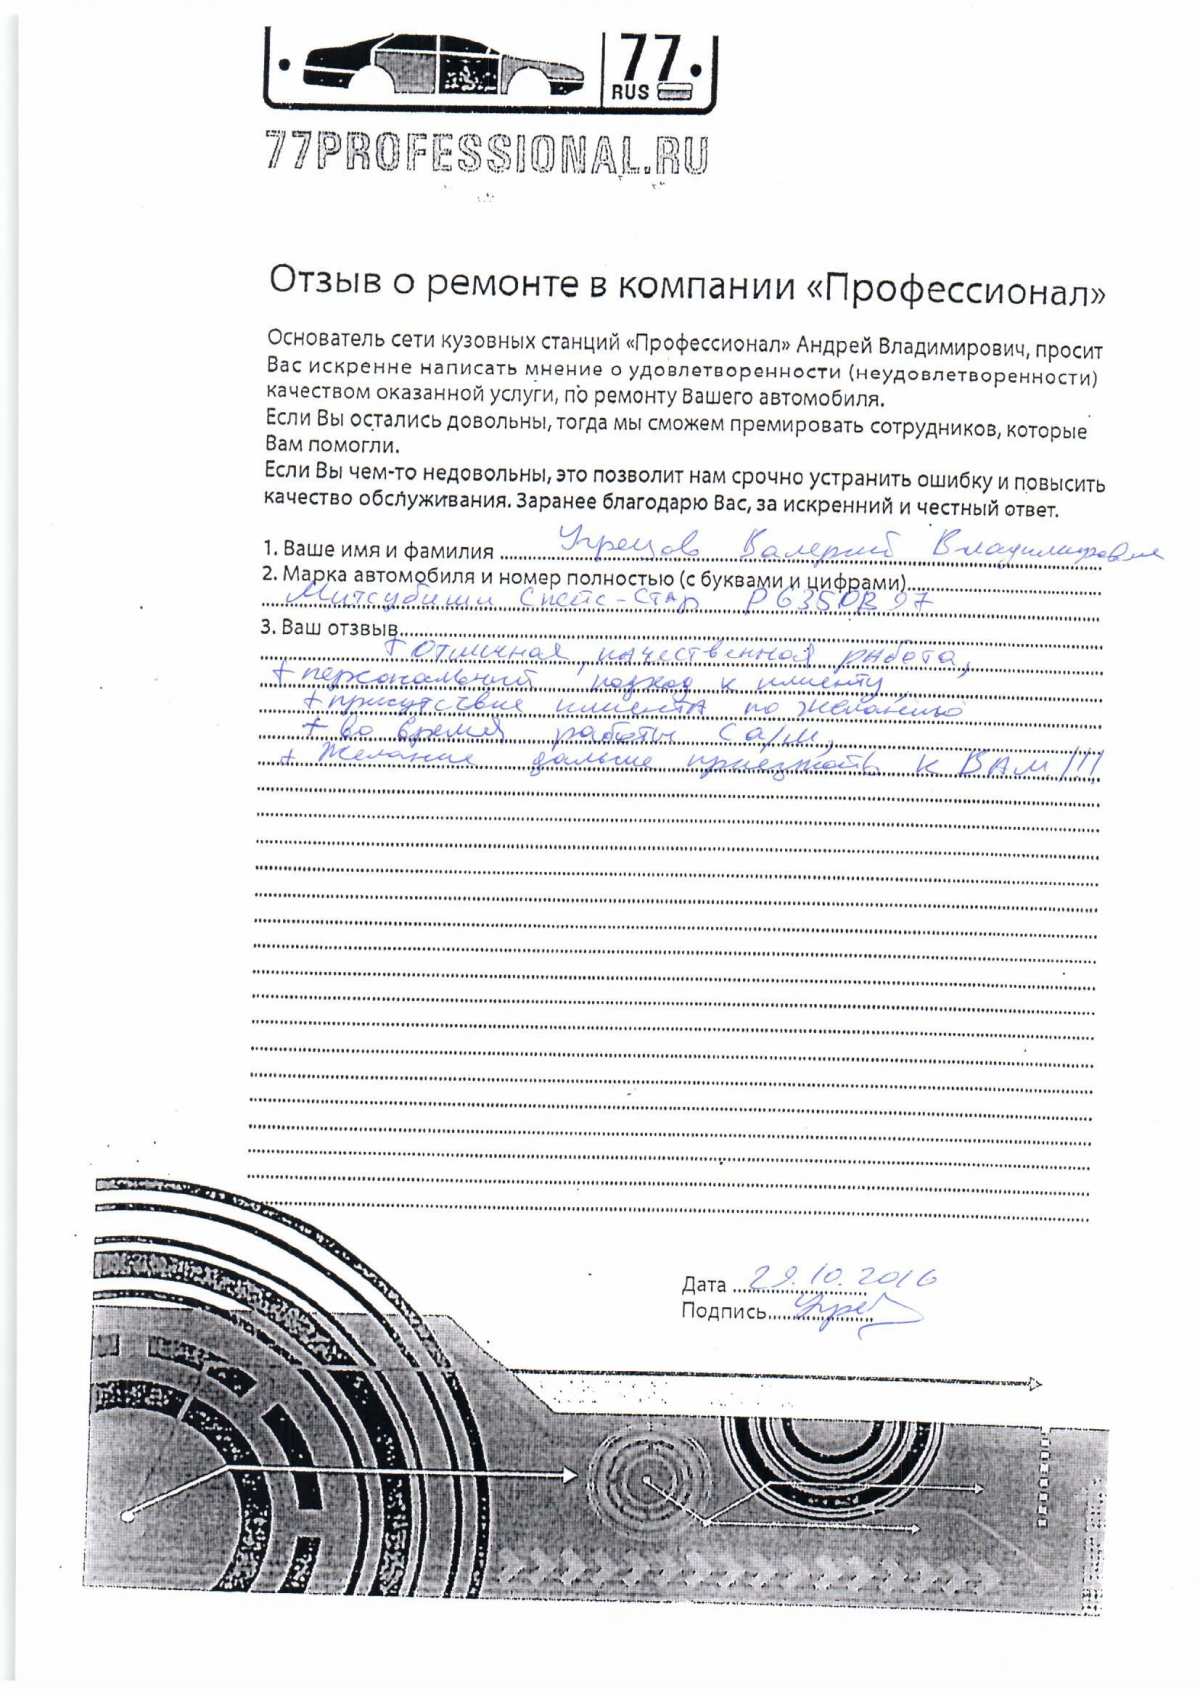 77
RUS
77PROFESSIONAL.RU
Отзыв о ремонте в компании «Профессионал»
Основатель сети кузовных станций «Профессионал» Андрей Владимирович, просит
Вас искренне написать мнение о удовлетворенности (неудовлетворенности)
качеством оказанной услуги, по ремонту Вашего автомобиля.
Если Вы остались довольны, тогда мы сможем премировать сотрудников, которые
Вам помогли.
Если Вы чем-то недовольны, это позволит нам срочно устранить ошибку и повысить
качество обслуживания. Заранее благодарю Вас, за искренний и честный ответ.
1. Ваше имя и фамилия Валерий Владимирович
2. Марка автомобиля и номер полностью (с буквами и цифрами)
Митсубиши Спейс-Стар Р635ОВ97
3. Ваш отзвыв
+ Отличная, качественная работа,
+ персональный подход к клиенту
+ присутствие клиента по желанию
+ во время работы с а/м,
+ Желание дальше приезжать к ВАм!!!
Дата 29.10.2016
Подпись